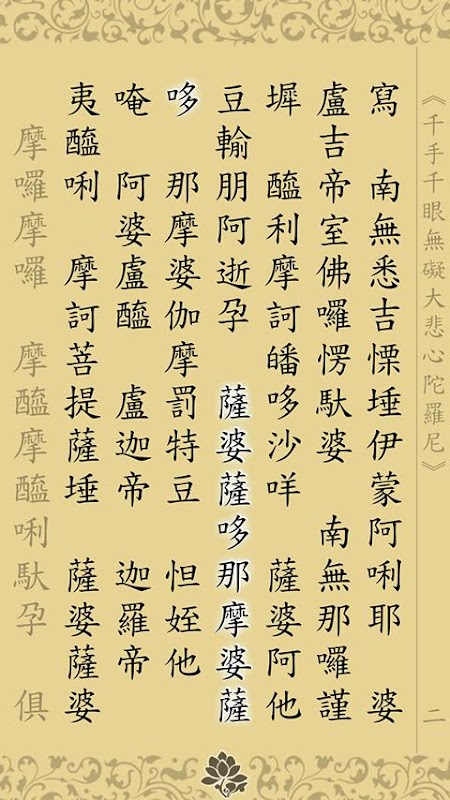 《千手千眼無礙大悲心陀羅尼》
二
寫　南無悉吉慄埵伊蒙阿唎耶　婆
盧吉帝室佛囉愣馱婆　南無那囉謹
墀　醯利摩訶皤哆沙咩　薩婆阿他
豆輸朋阿逝孕　薩婆薩哆那摩婆薩
哆　那摩婆伽摩罰特豆　怛姪他
唵　阿婆盧醯　盧迦帝　迦羅帝
夷醯唎　摩訶菩提薩埵　薩婆薩婆
摩囉摩囉　摩醯摩醯唎馱孕　俱